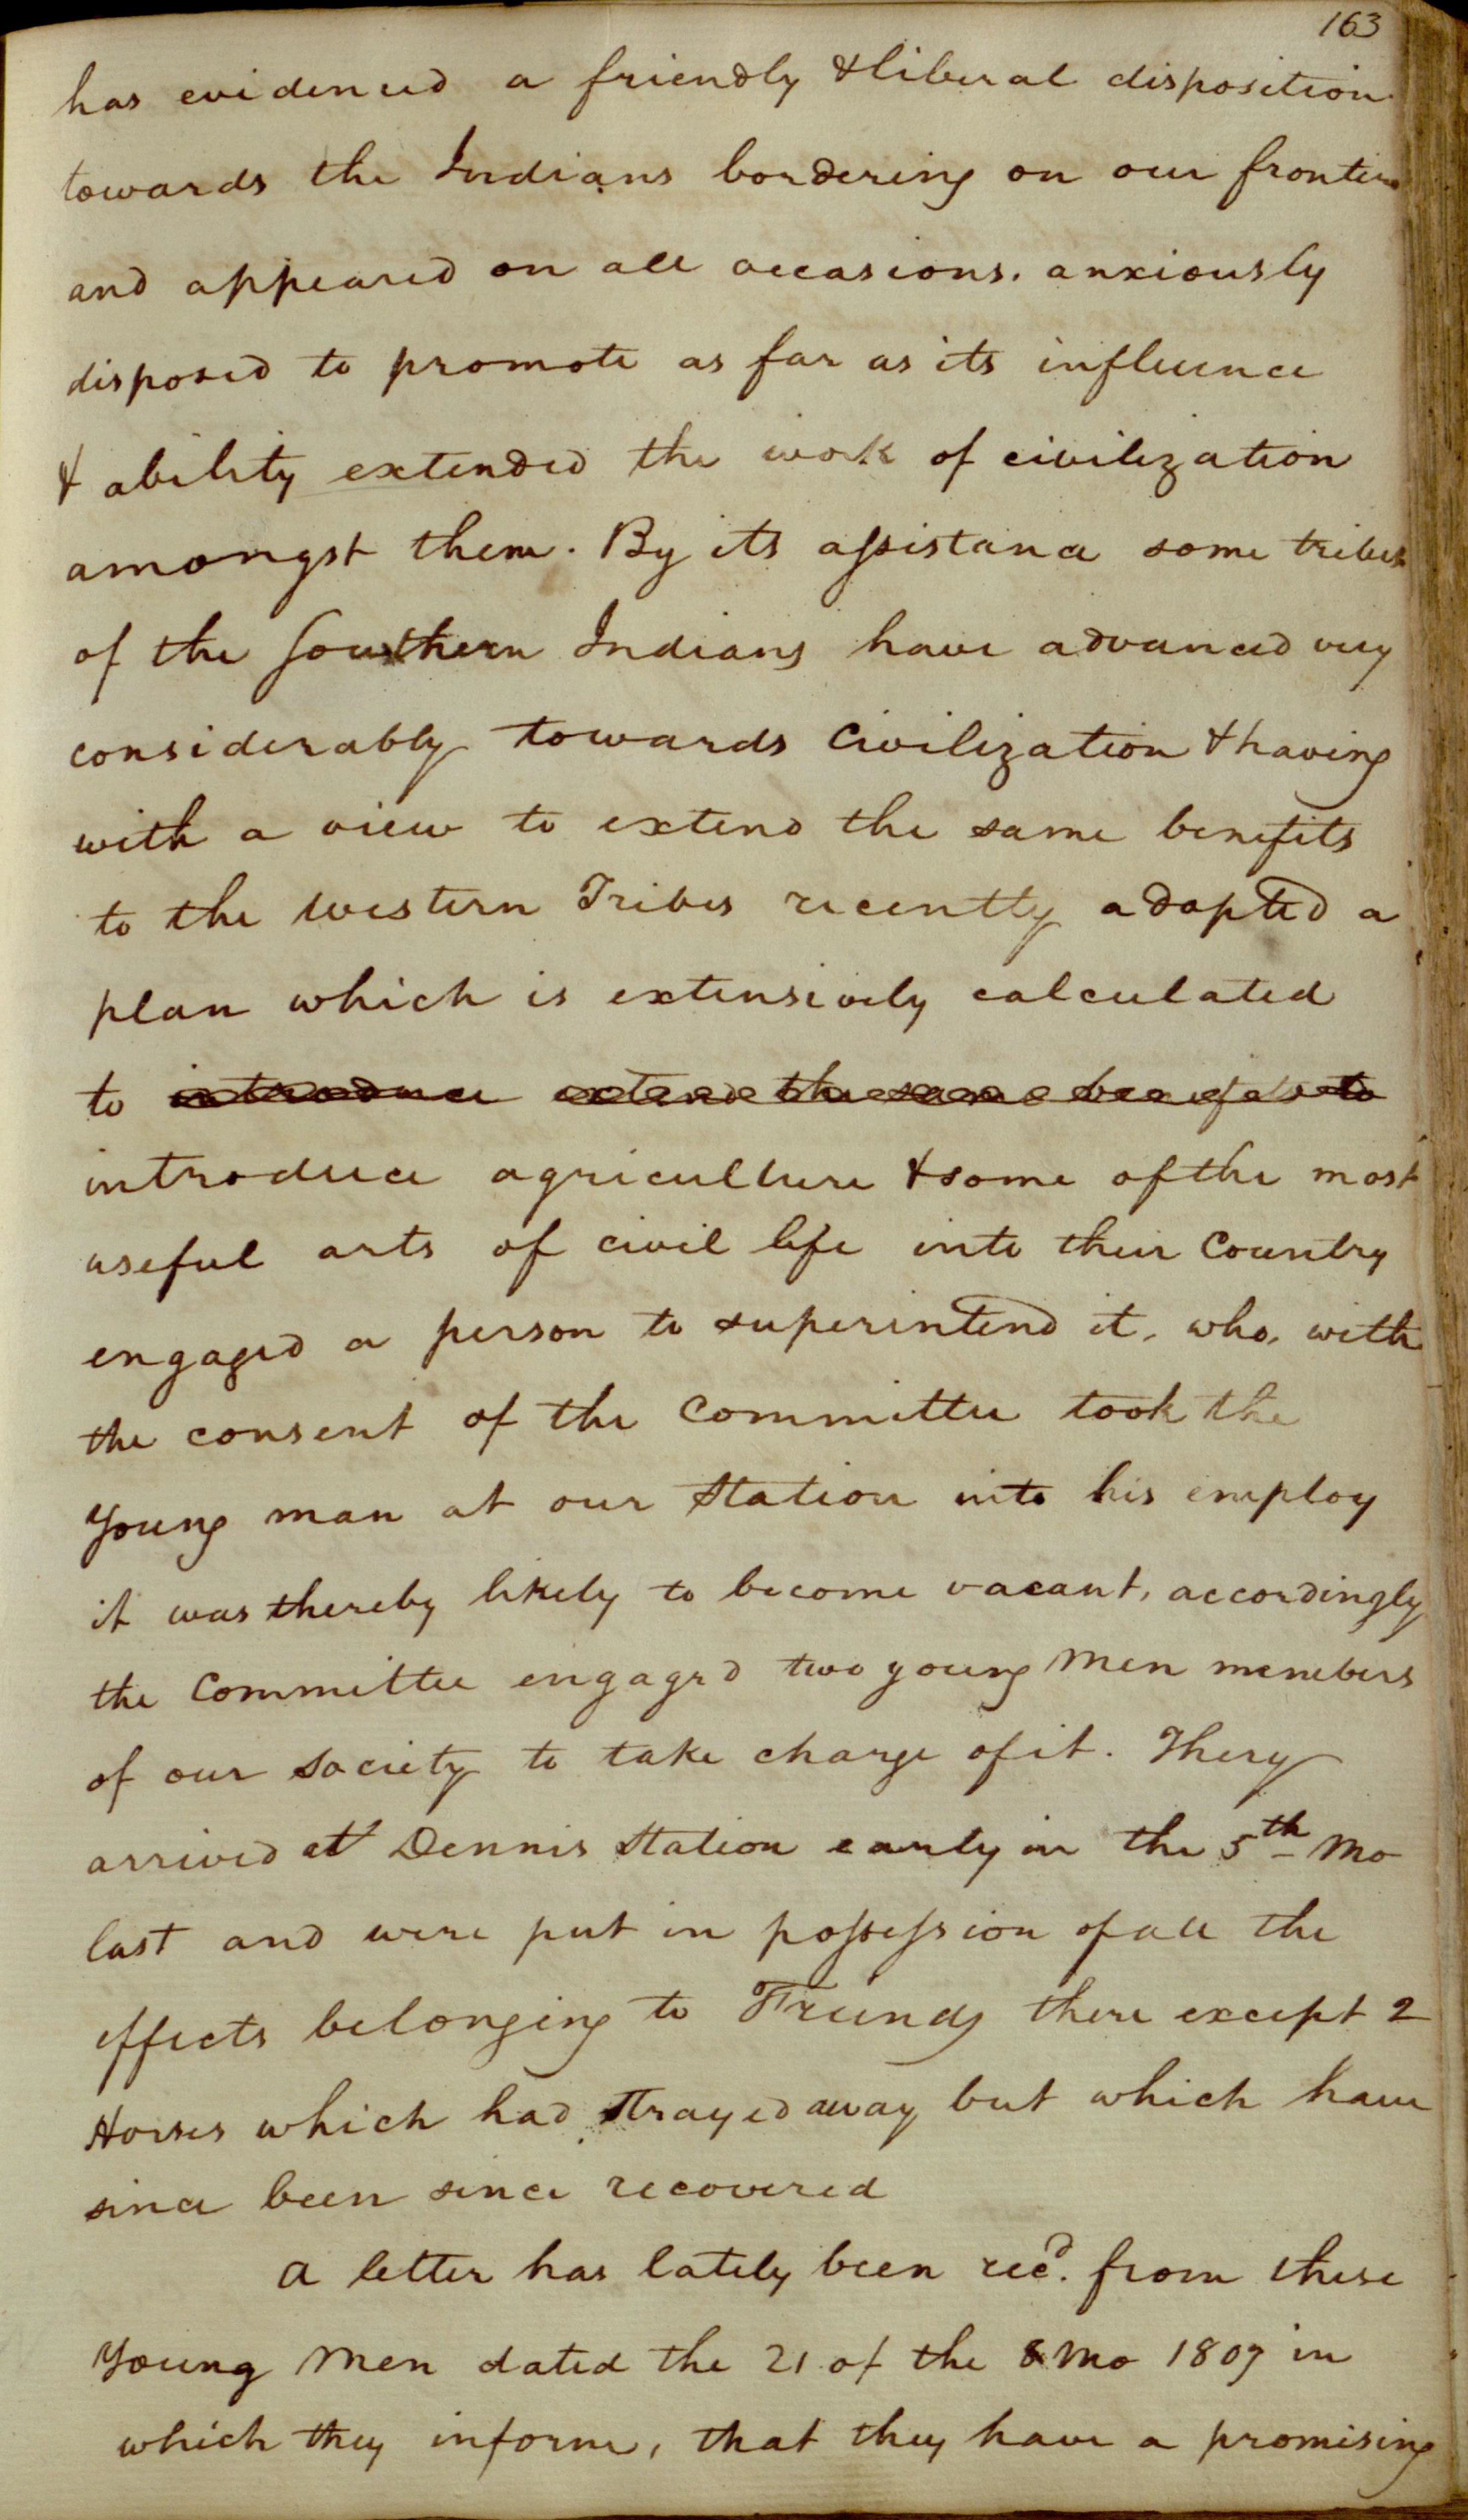 163
has evidenced a friendly & liberal disposition
towards the Indians bordering on our frontiers
and appeared on all occasions. anxiously
disposed to promote as far as its influence
& ability extended the work of civilization
amongst them. By its assistance some tribes
of the Southern Indians have advanced very
considerably towards Civilization & having
with a view to extend the same benefits
to the Western Tribes recently adopted a
plan which is extensively calculated
to introduce extend the same benefits to
introduce agriculture & some of the most
useful arts of civil life into their Country
engaged a person to superintend it, who, with
the consent of the Committee took the
Young man at our Station into his employ
it was thereby likely to become vacant, accordingly
the Committee engaged two young Men members
of our Society to take charge of it. They
arrived at Dennis Station early in the 5th Mo
last and were put in possession of all the
effects belonging to Friends there except 2
Horses which had strayed away but which have
since been since recovered
A letter has lately been recd. from these
Young Men dated the 21 of the 8 Mo 1807 in
which they inform, that they have a promising